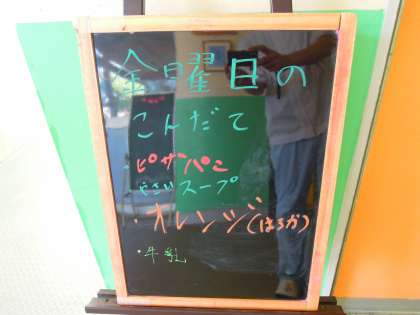 金曜日の
こんだて
ピザパン
やさいスープ
・オレンジ(はるか)
・牛乳